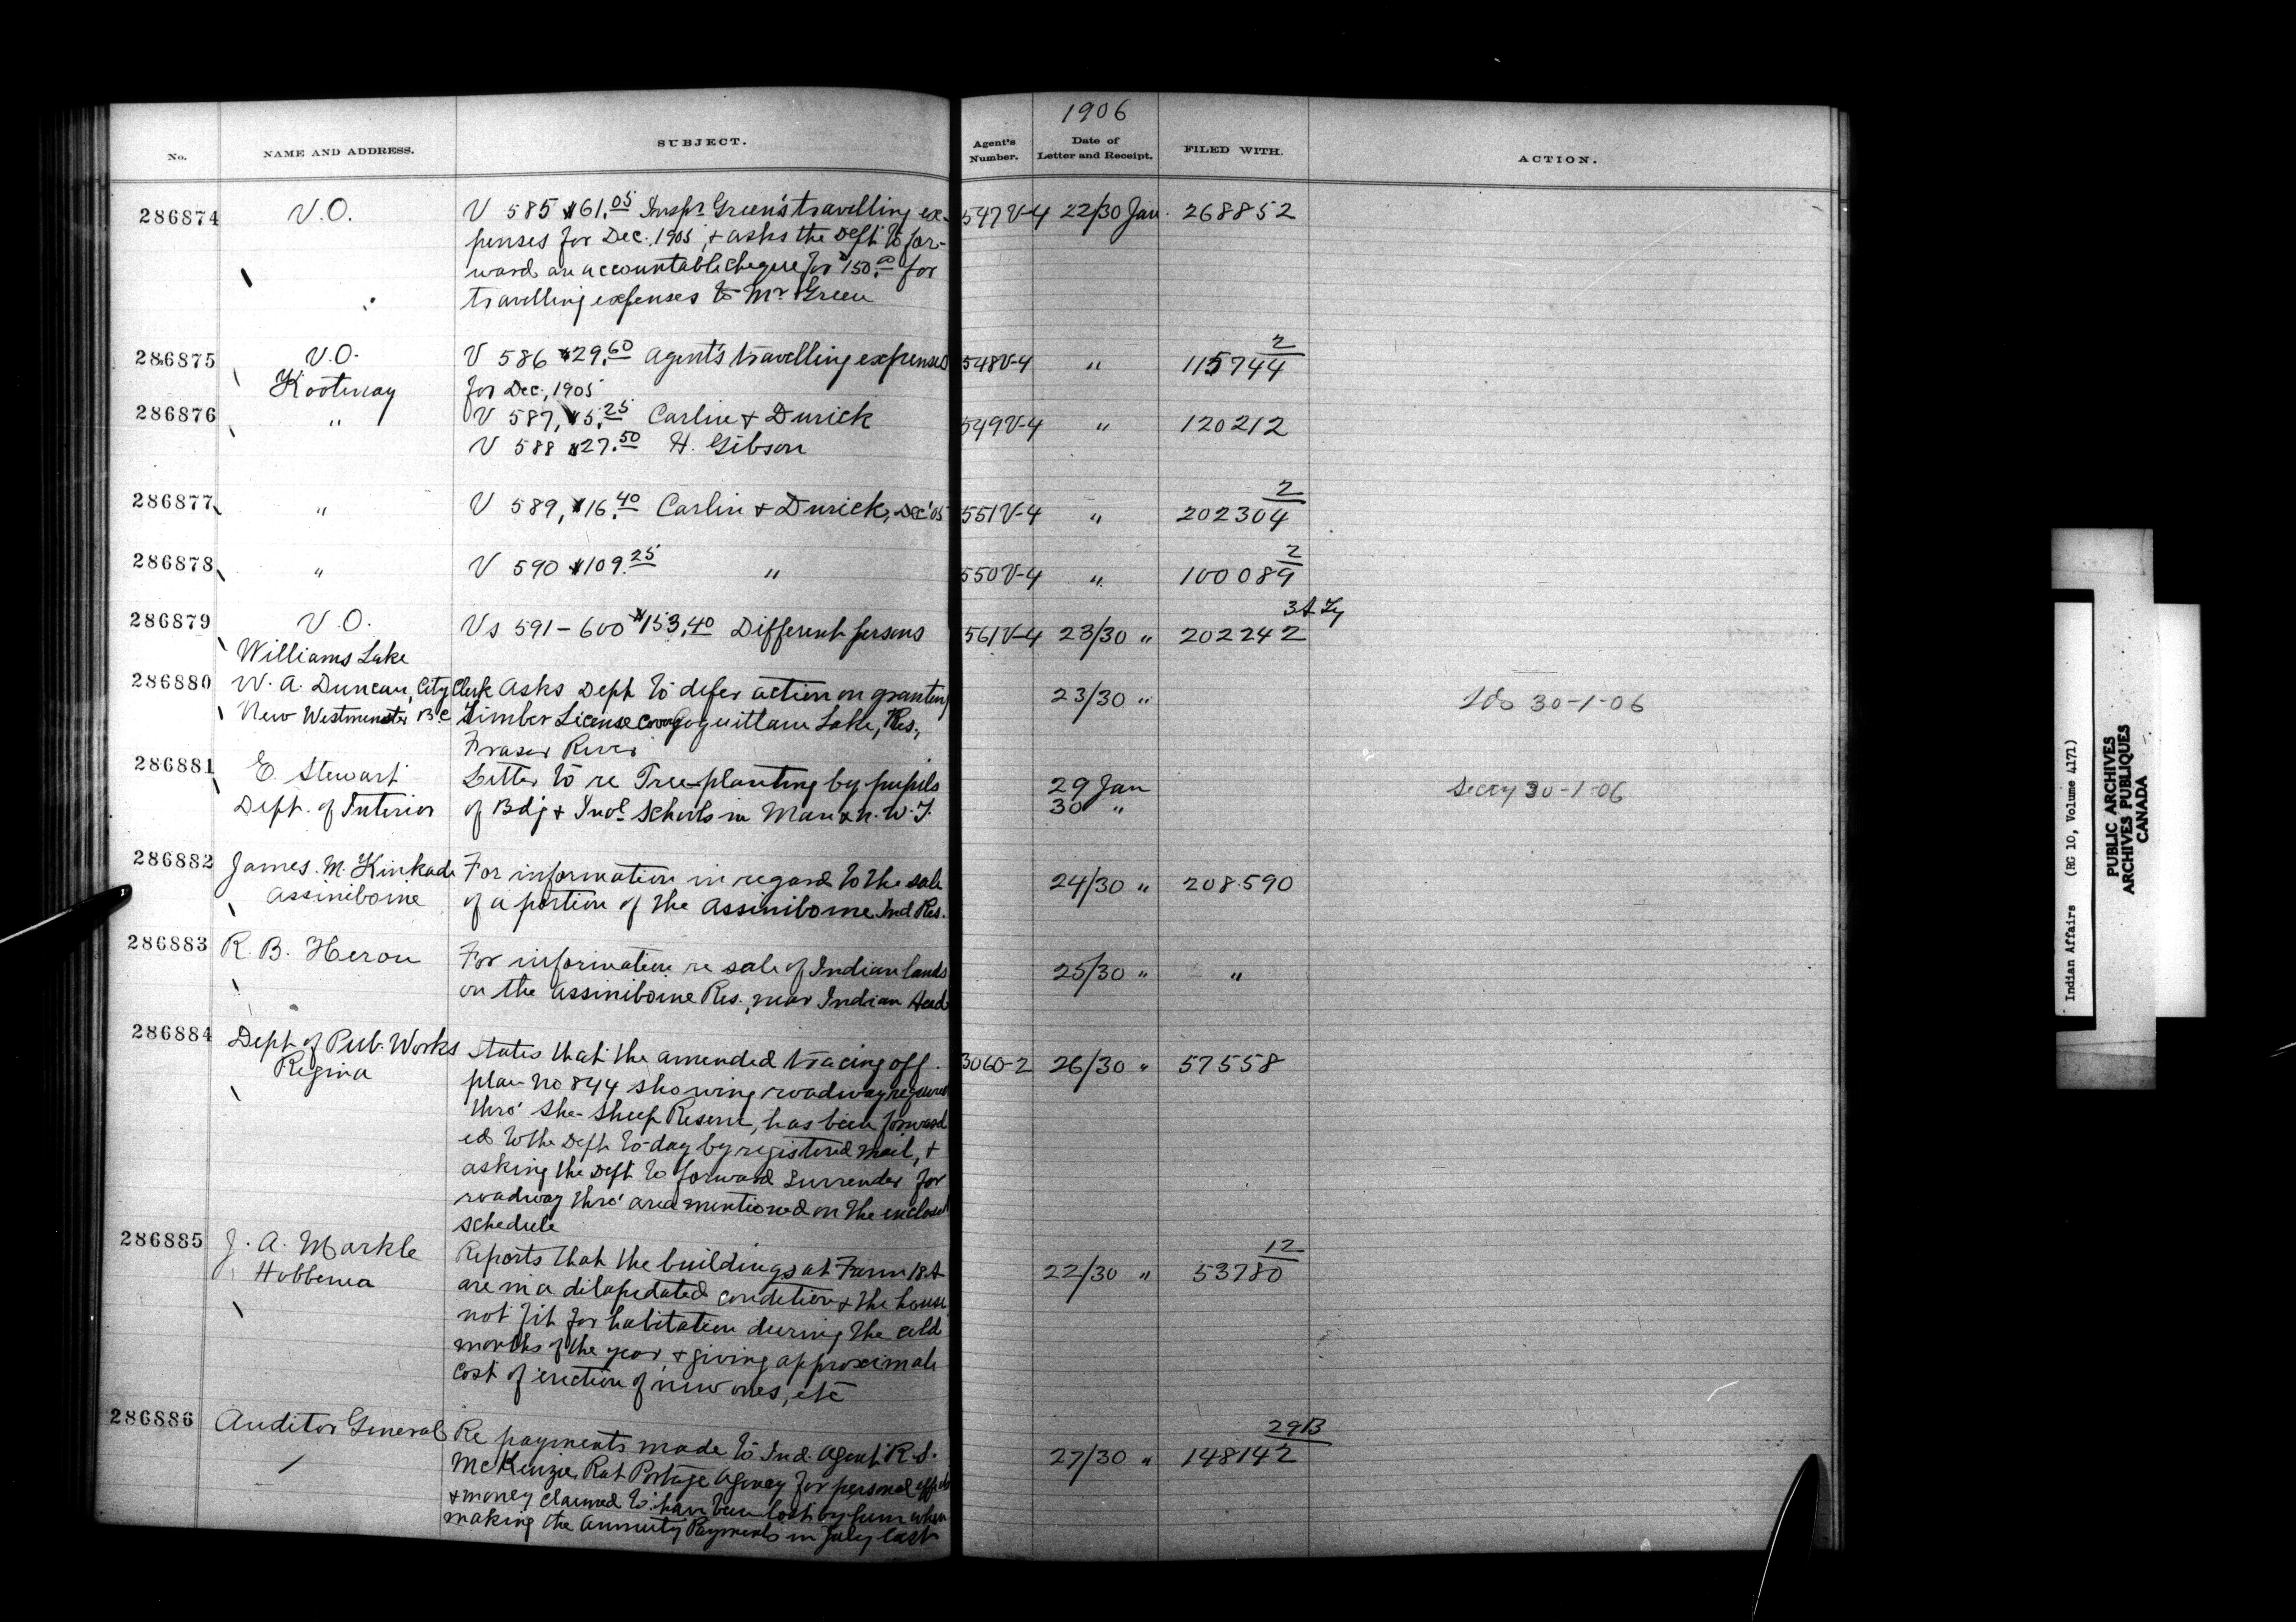 1906
No. NAME AND ADDRESS. SUBJECT. Agent's Number. Date of Letter and Receipt. FILED WITH. ACTION.
286874 V.O. V 585 $61.05 Inspr. Green's travelling ex- 547V-4 22/30 Jan. 268852
penses for Dec. 1905, & asks the Dept to for-
ward an accountable cheque for $150.00 for
travelling expenses to Mr Green
286875 V.O. V 586 $29.60 Agent's travelling expenses 548V-4 " 115744 2
Kootenay for Dec., 1905
286876 " V 587, $5.25 Carlin & Durick 549V-4 " 120212
V 588 $27.50 H. Gibson
286877 " V 589, $16.40 Carlin & Durick, Dec '05 551V-4 " 202304 2
286878 " V 590 $109.25 " 550V-4 " 100089 2
286879 V.O. Vs 591-600 $153.40 Different persons 561V-4 23/30 " 202242
Williams Lake
286880 W. A. Duncan, City Clerk Asks Dept to defer action on granting 23/30 " 30-1-06
New Westminster B.C. Timber License Coquitlam Lake, Res.,
Fraser River
286881 E. Stewart Letter to re Tree-planting by pupils 29 Jan Secty 30-1-06
Dept. of Interior of Bdg & Indl. Schools in Man & N.W.T. 30 "
286882 James. M. Kinkade For information in regard to the sale 24/30 " 208590
Assiniboine of a portion of the Assiniboine Ind Res.
286883 R. B. Heron For information re sale of Indian lands 25/30 " "
on the Assiniboine Res., near Indian Head
286884 Dept of Pub. Works States that the amended tracing off 3060-2 26/30 " 57558
Regina plan No 844 showing roadway required
thro' the Sheep Reserve, has been forward
ed to the Dept to-day by registered mail, &
asking the Dept to forward Surrender for
roadway thro' area mentioned on the enclosed
schedule
286885 J. A. Markle Reports that the buildings at Farm 18A 22/30 " 53780 12
Hobbema are in a dilapidated condition & the house
not fit for habitation during the cold
months of the year, & giving approximate
cost of erection of new ones, etc
286886 Auditor General Re payments made to Ind. Agent R.S. 27/30 " 148142 29B
McKenzie, Rat Portage Agency for personal effects
& money claimed to have been lost by him when
making the Annuity Payments in July last
Indian Affairs (RG 10, Volume 4171)
PUBLIC ARCHIVES
ARCHIVES PUBLIQUES
CANADA